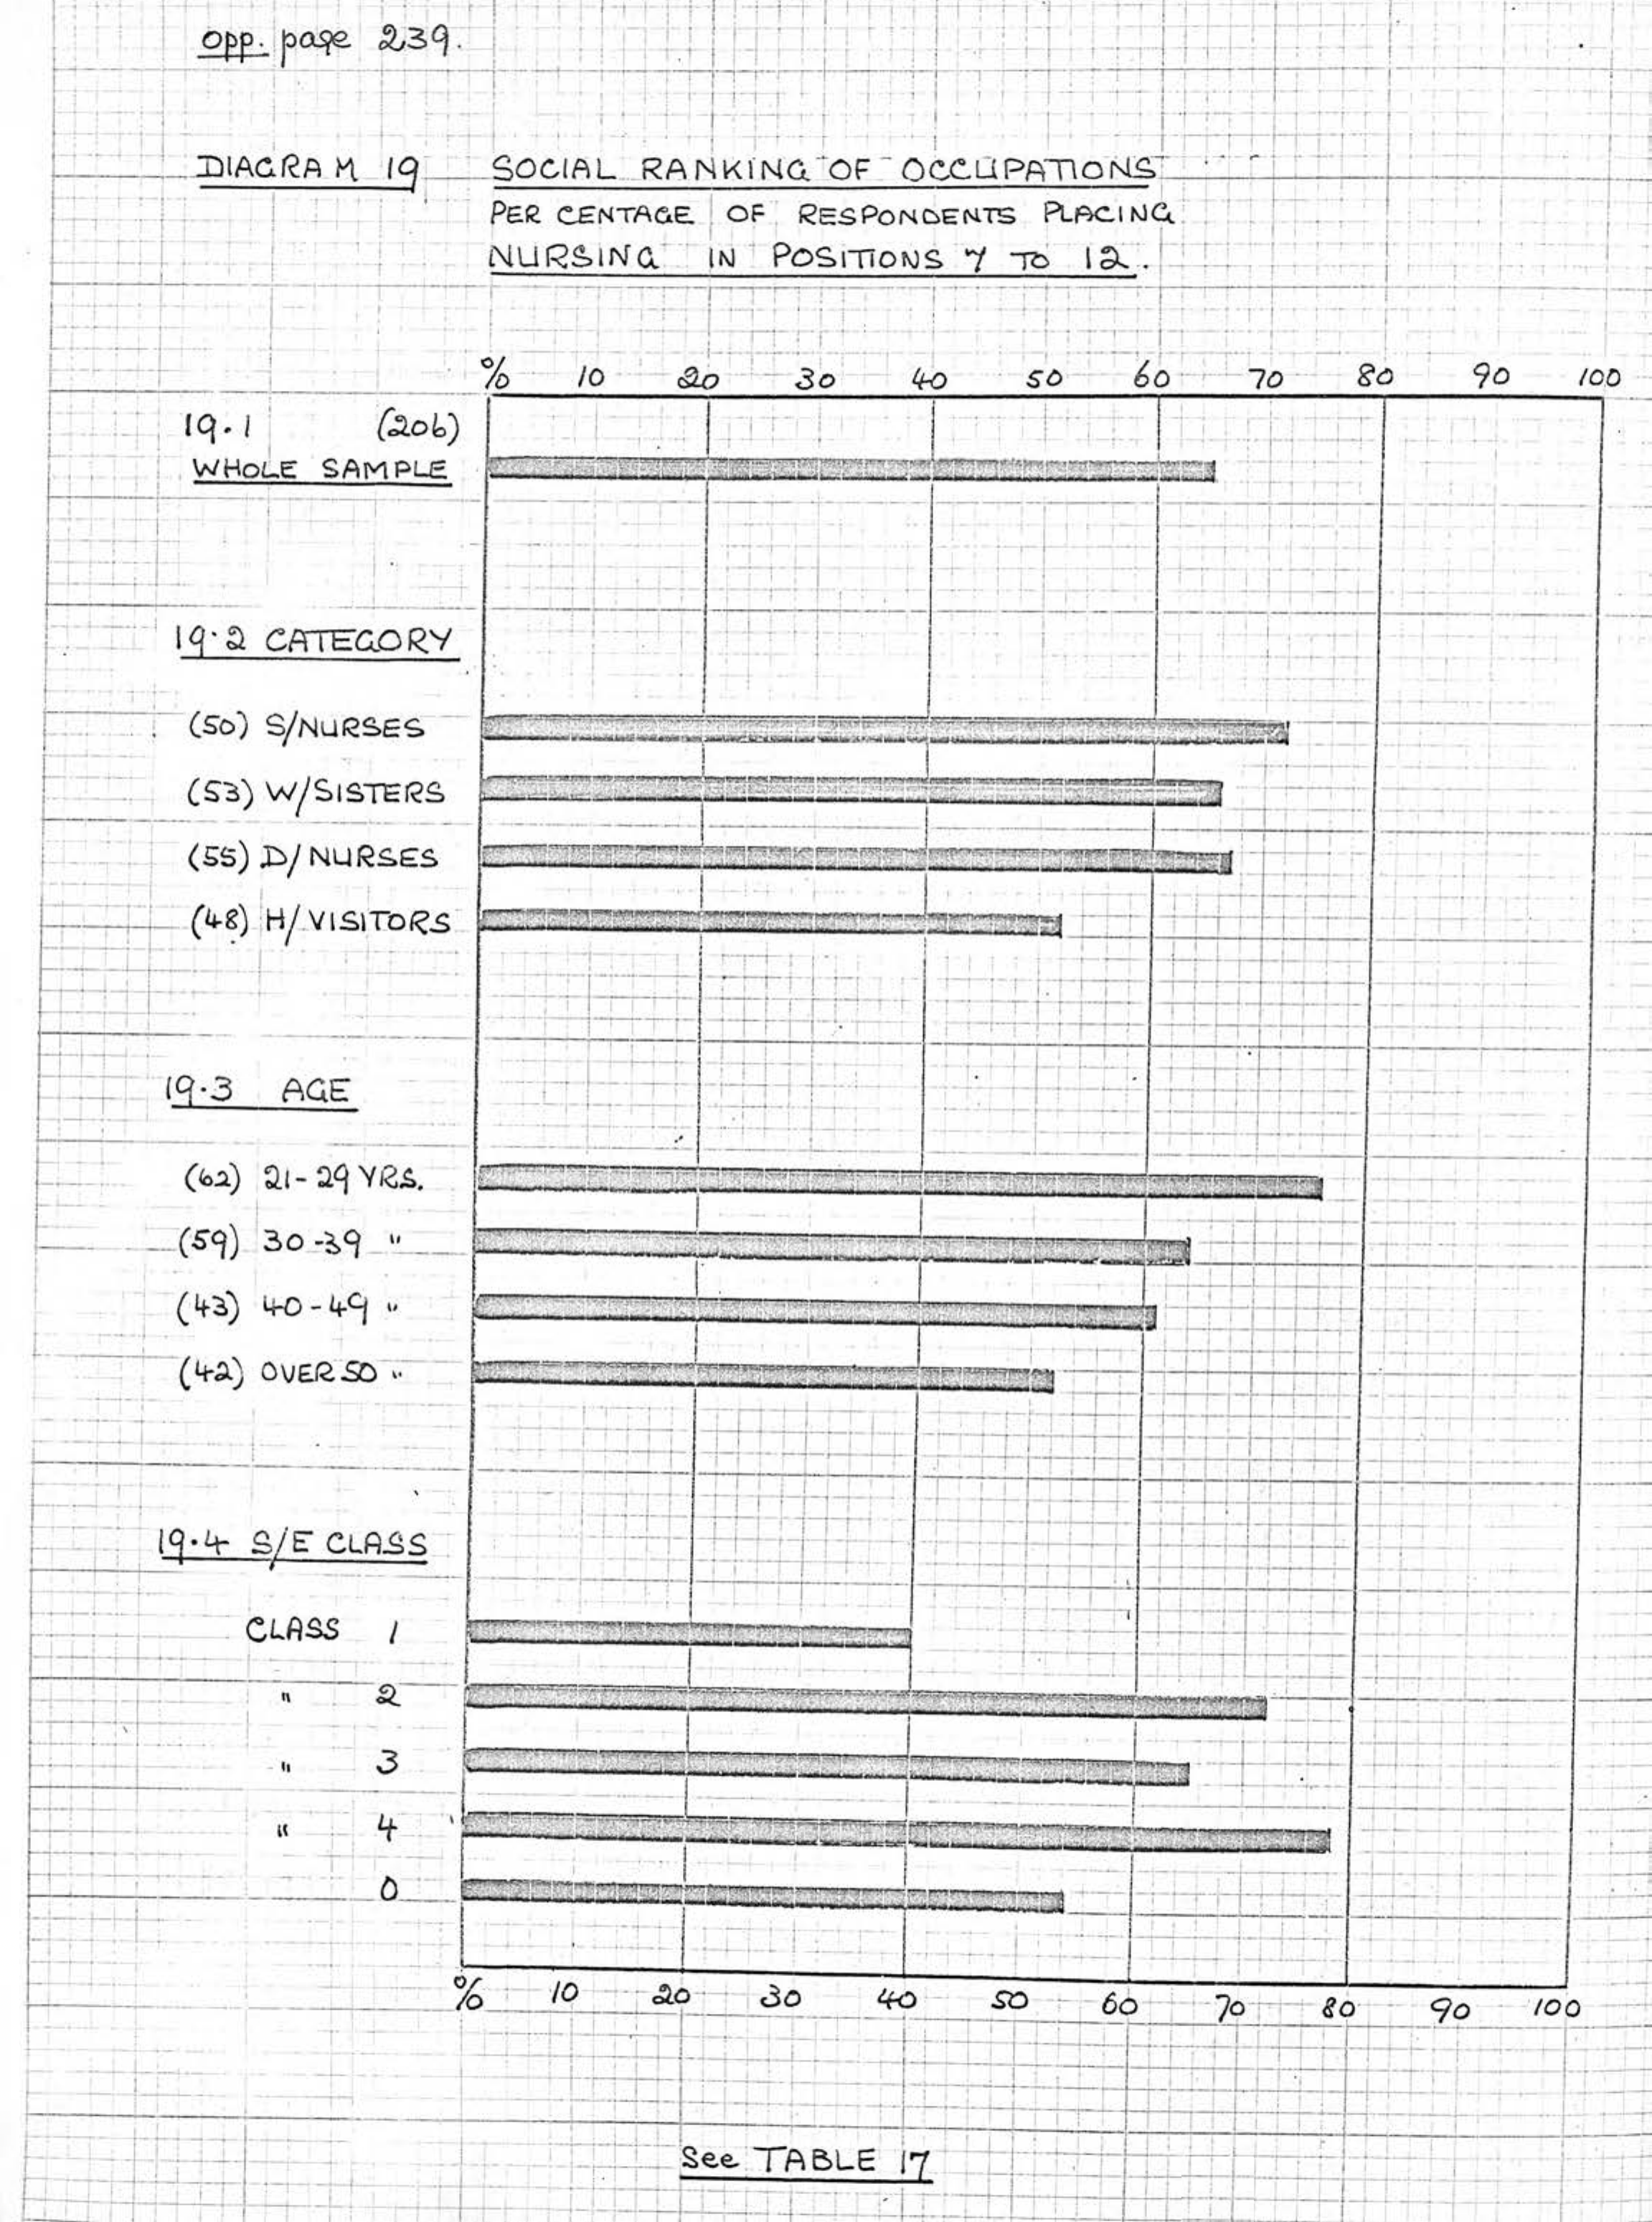 opp. page 239.
DIAGRAM 19 SOCIAL RANKING OF OCCUPATIONS
PER CENTAGE OF RESPONDENTS PLACING
NURSING IN POSITIONS 7 TO 12.
% 10 20 30 40 50 60 70 80 90 100
19.1 (206)
WHOLE SAMPLE
19.2 CATEGORY
(50) S/NURSES
(53) W/SISTERS
(55) D/NURSES
(48) H/VISITORS
19.3 AGE
(62) 21-29 YRS.
(59) 30-39 "
(43) 40-49 "
(42) OVER 50 "
19.4 S/E CLASS
CLASS 1
" 2
" 3
" 4
0
% 10 20 30 40 50 60 70 80 90 100
See TABLE 17